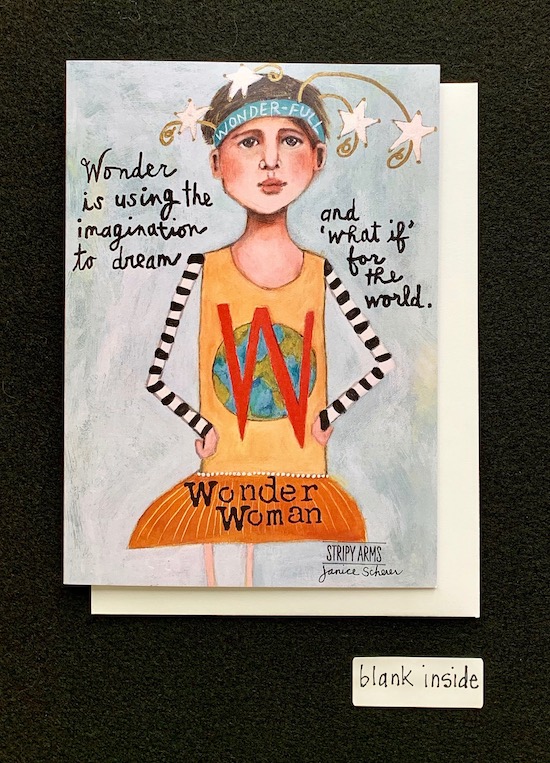 WONDER-FULL
Wonder
is using the
imagination
to dream
and
'what if'
for
the
world.
W
Wonder
Woman
STRIPY ARMS
Janice Scherer
blank inside